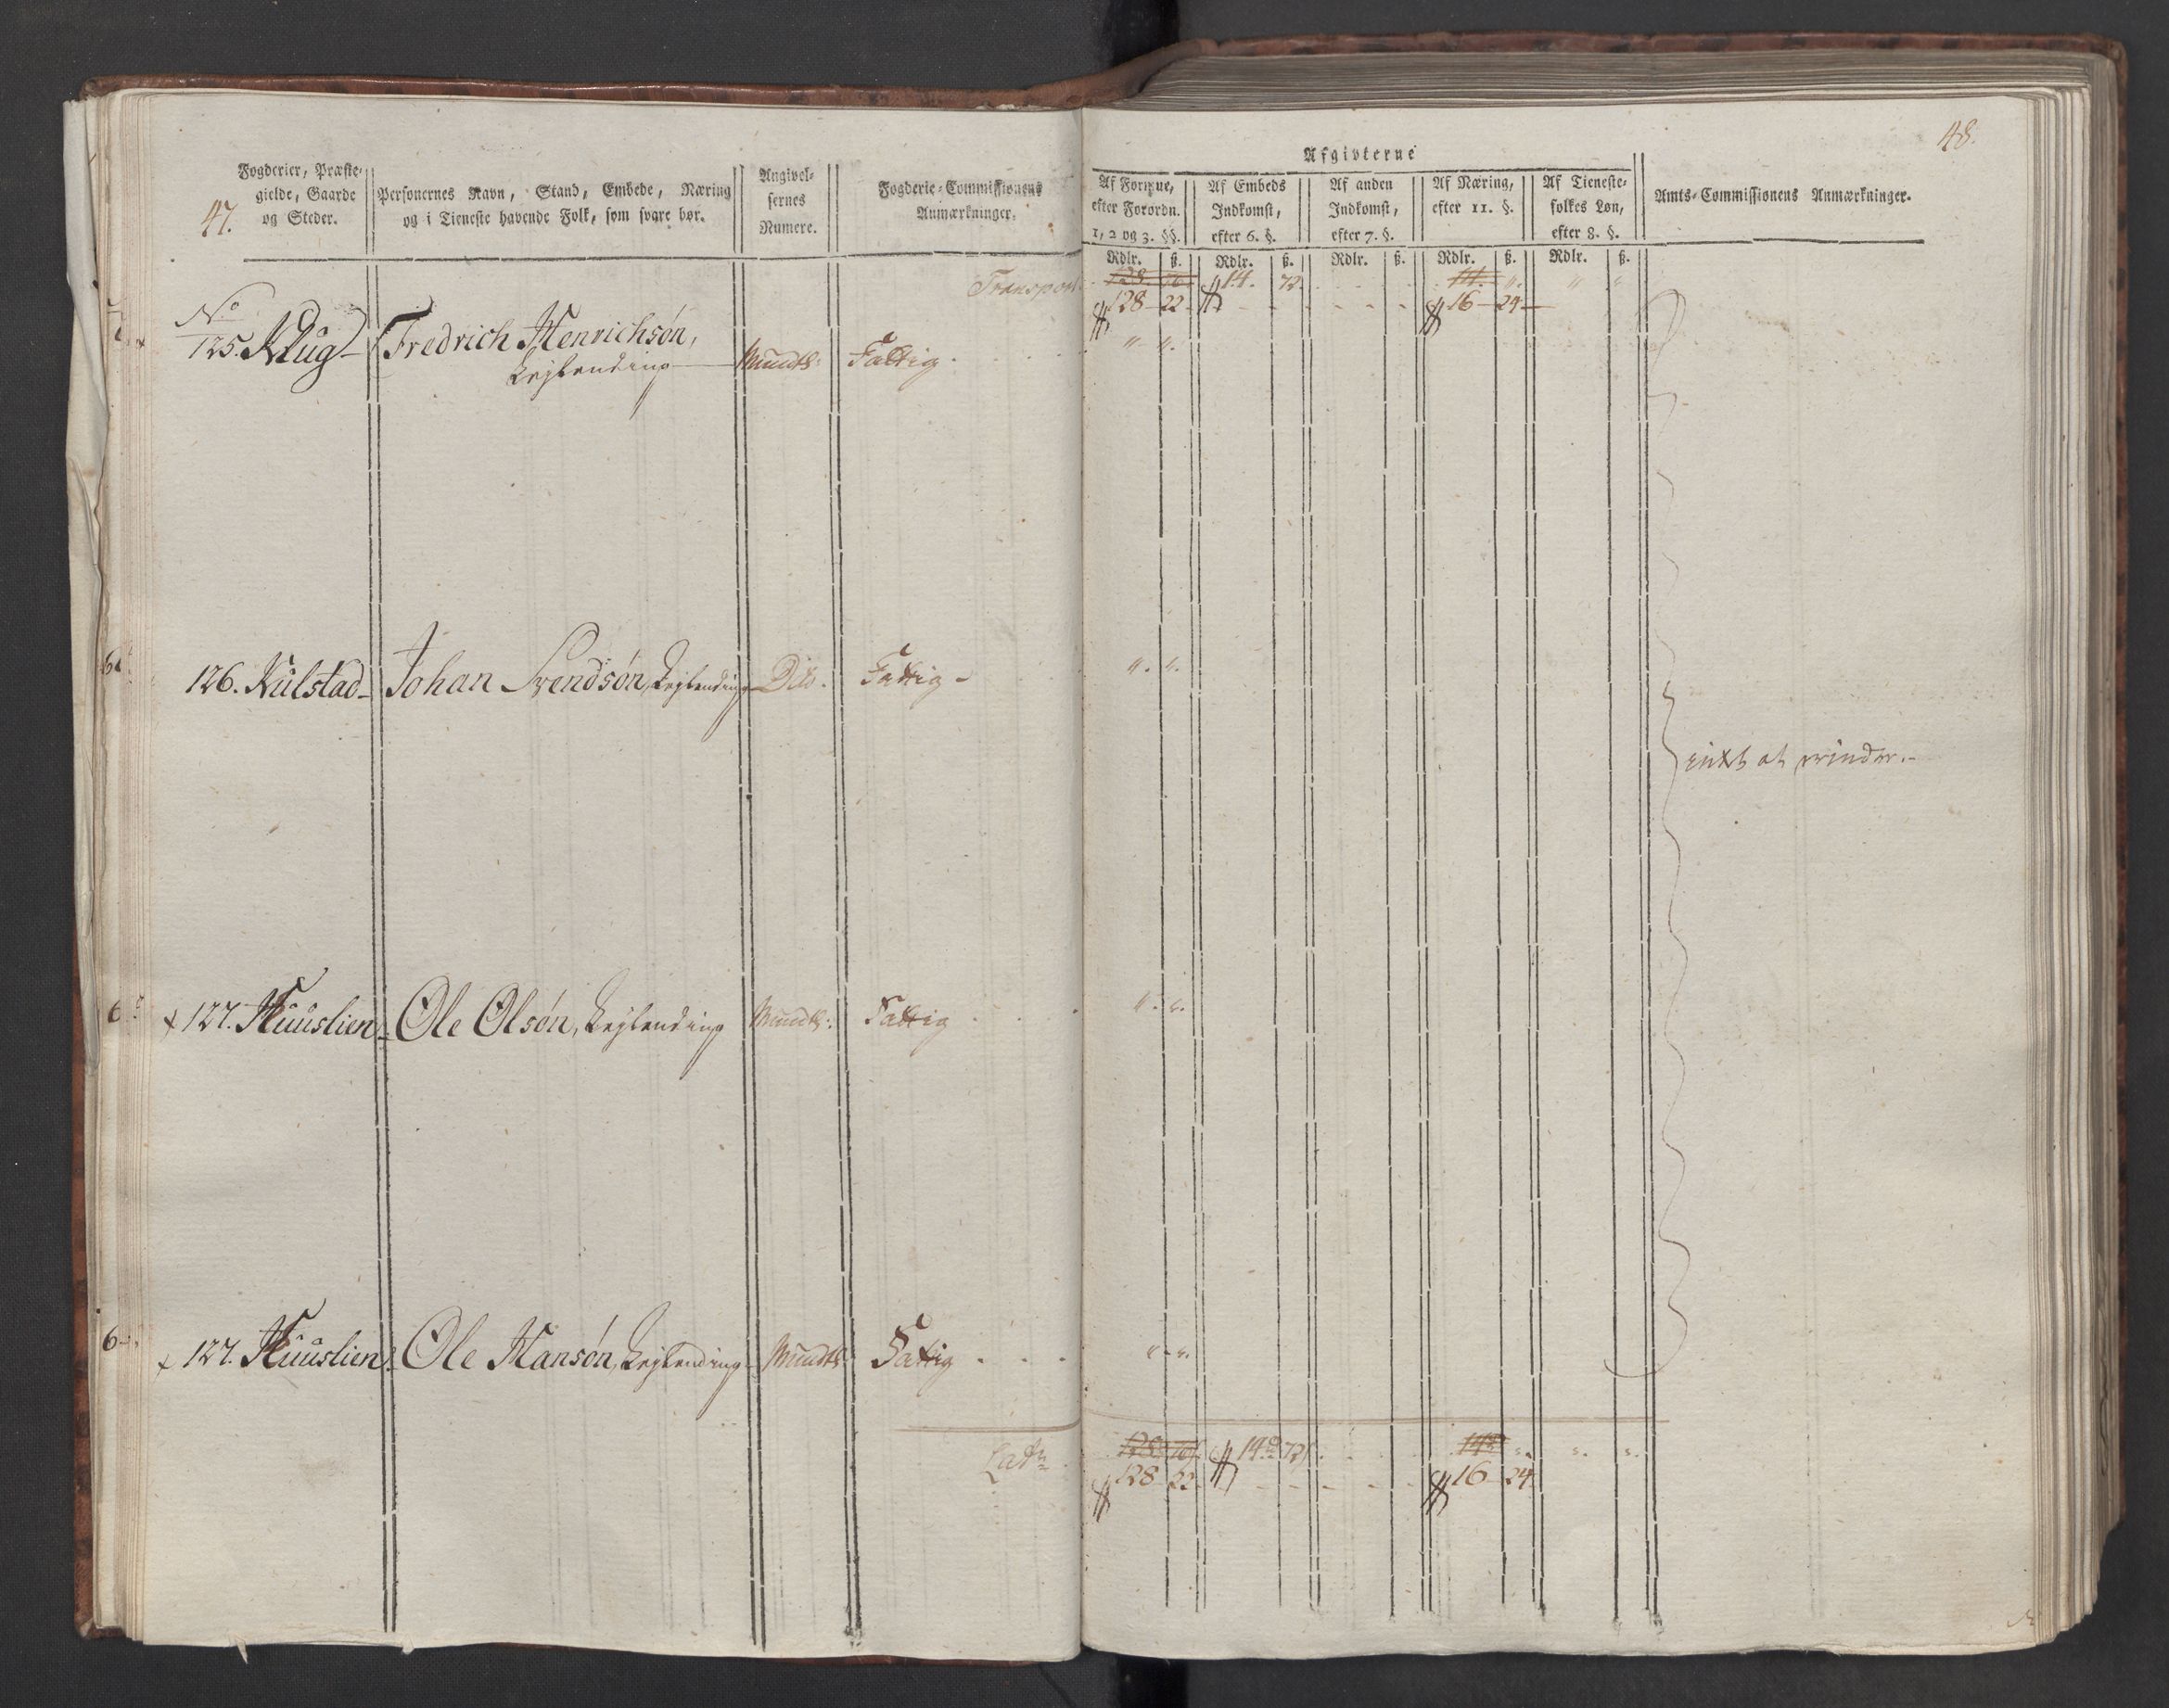 47.
Fogderier, Præste-
gielde, Gaarde
og Steder.
Personernes Navn, Stand, Embede, Næring
og i Tieneste havende Folk, som svare bør.
Angivel-
sernes
Numere.
Fogderie-Commissionens
Anmærkninger.
Transport
No
125. Klug - Fredrich Henrichsøn,
Lejlending - Mundtl: Fattig.
126. Kulstad - Johan Svendsøn, Lejlending - Dito. Fattig -
127. Huuslien - Ole Olsøn, Lejlending Mundtl: Fattig
127. Huuslien. Ole Hansøn, Lejlending - Mundtl: Fattig
Lat:
48.
Afgivterne
Af Formue,
efter Forordn.
1, 2 og 3. §§.
Af Embeds
Indkomst,
efter 6. §.
Af anden
Indkomst,
efter 7. §.
Af Næring,
efter 11. §.
Af Tieneste-
folkes Løn,
efter 8. §.
Amts-Commissionens Anmærkninger.
Rdlr. ß. Rdlr. ß. Rdlr. ß. Rdlr. ß. Rdlr. ß.
128. 76. 14. 72. 14. " " "
128 - 22 - 16 - 24 -
" "
" "
intet at erindre.-
" "
" "
128 76 14 72 14 " " "
128 22 16 24